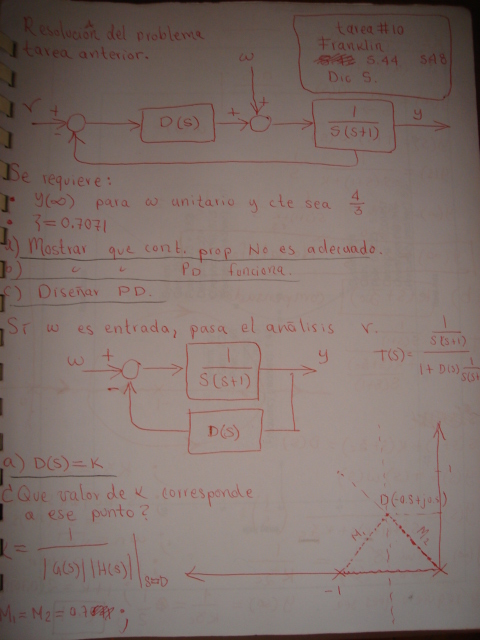 Resolución del problema
tarea anterior.
tarea #10
Franklin
5.44 5A8
Dic 5.
w
r + D(s) + + 1/S(S+1) y
Se requiere:
• y(∞) para w unitario y cte sea 4/3
• ξ=0.7071
a) Mostrar que cont. prop No es adecuado.
b) " " PD funciona.
c) Diseñar PD.
Si w es entrada, pasa el análisis r.
w + - 1/S(S+1) y
D(s)
T(s)= 1/S(S+1) / 1+D(s) 1/S(S+
a) D(s)=K
¿Que valor de K corresponde
a ese punto?
K = 1 / |G(s)| |H(s)| |s=D
D(-0.5+j0.5)
M1 M2
1
-1
M1 = M2 = 0.70 ;